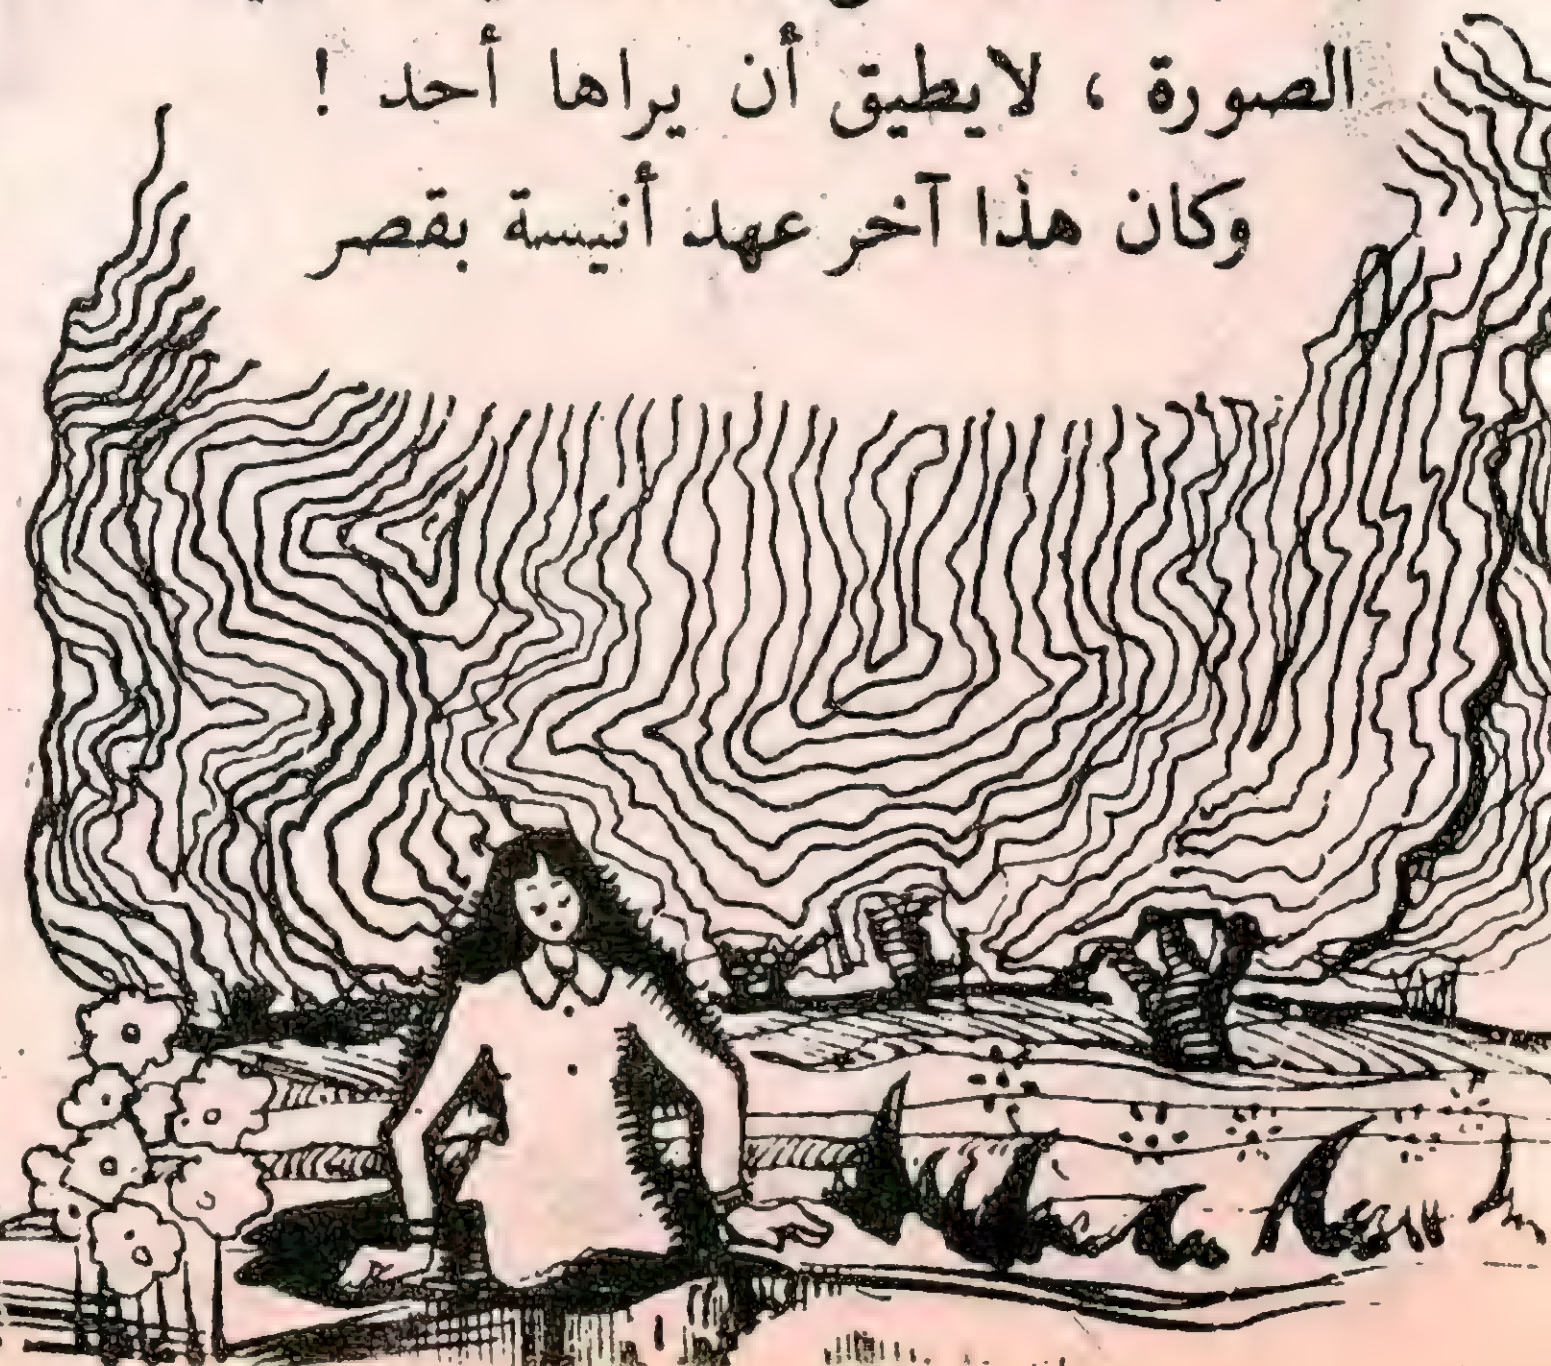 الصورة ، لايطيق أن يراها أحد !
وكان هذا آخر عهد أنيسة بقصر